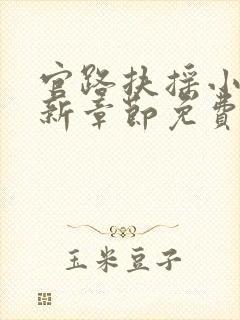 官路扶摇小
新章节免费
玉米豆子